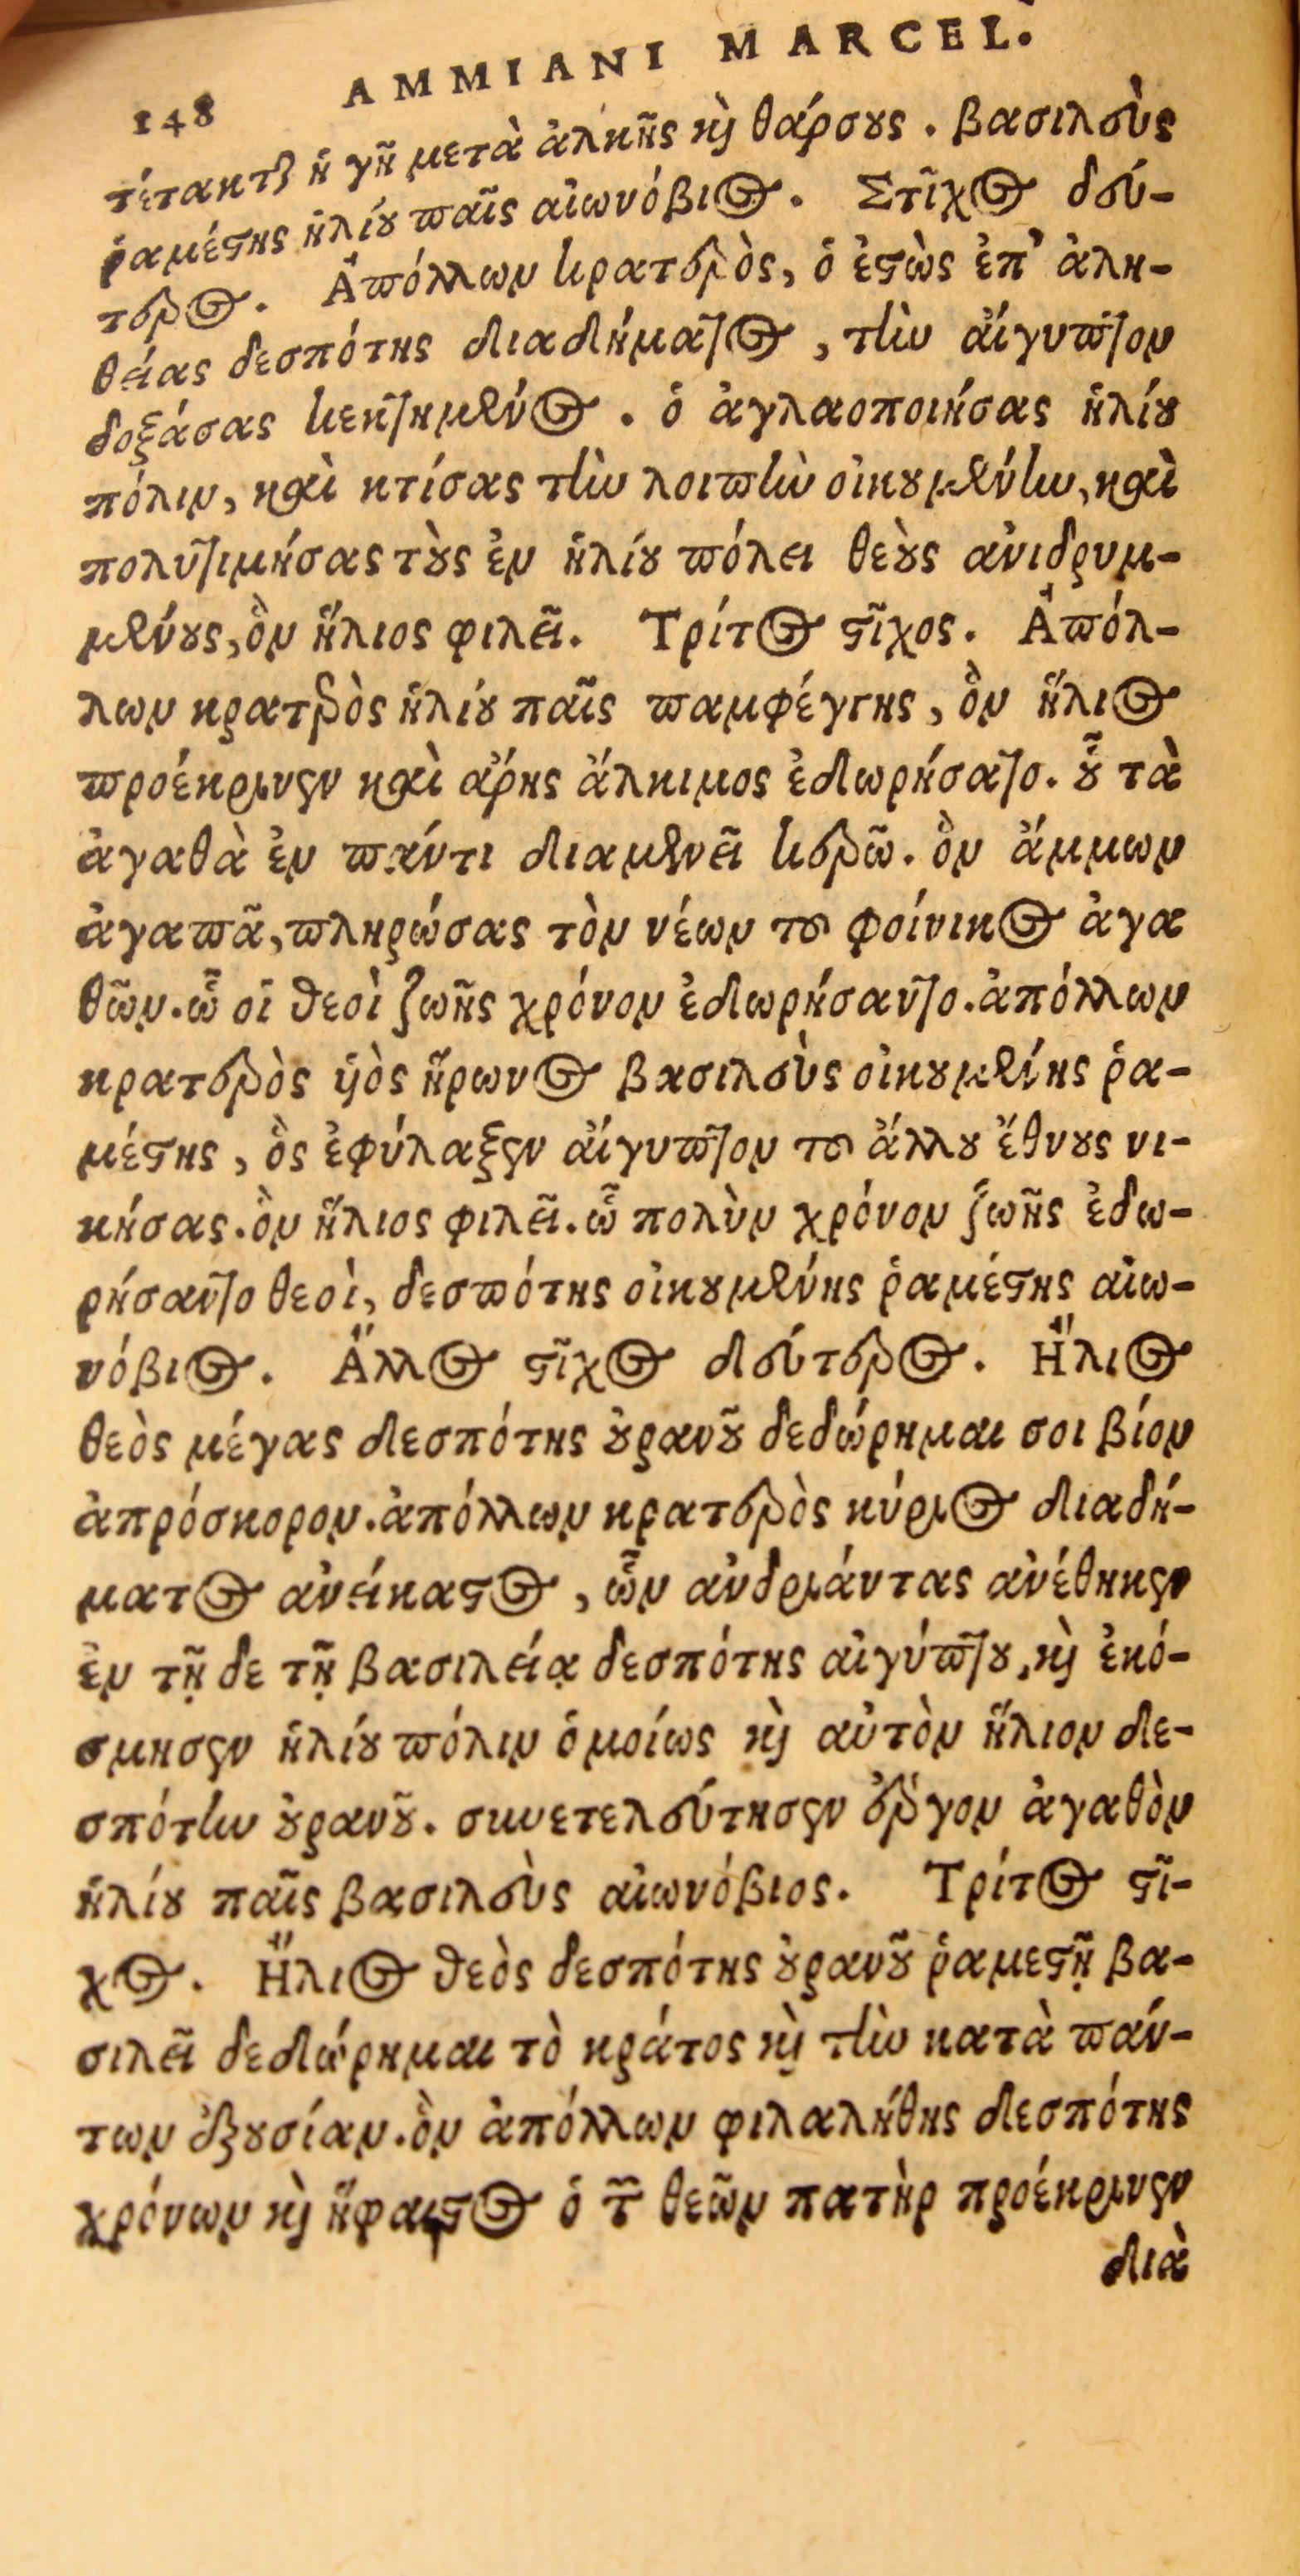 148 AMMIANI MARCEL.
τέτακται ἡ γῆ μετὰ ἀλκῆς καὶ θάρσους. βασιλεὺς
ῥαμέστης ἡλίου παῖς αἰωνόβιος. Στῖχος δεύ-
τερος. Ἀπόλλων κρατερὸς, ὁ ἑστὼς ἐπ' ἀλη-
θείας δεσπότης διαδήματος, τὴν αἴγυπτον
δοξάσας κεκτημένος. ὁ ἀγλαοποιήσας ἡλίου
πόλιν, καὶ κτίσας τὴν λοιπὴν οἰκουμένην, καὶ
πολυτιμήσας τοὺς ἐν ἡλίου πόλει θεοὺς ἀνιδρυμ-
μένους, ὃν ἥλιος φιλεῖ. Τρίτος στῖχος. Ἀπόλ-
λων κρατερὸς ἡλίου παῖς παμφέγγης, ὃν ἥλιος
προέκρινεν καὶ ἄρης ἄλκιμος ἐδωρήσατο. οὗ τὰ
ἀγαθὰ ἐν παντὶ διαμενεῖ κερῶ. ὃν ἄμμων
ἀγαπᾶ, πληρώσας τὸν νέων τοῦ φοίνικος ἀγα
θῶν. ὧ οἱ θεοὶ ζωῆς χρόνον ἐδωρήσαντο. ἀπόλλων
κρατερὸς ὑὸς ἥρωνος βασιλεὺς οἰκουμένης ῥα-
μέστης, ὃς ἐφύλαξεν αἴγυπτον τοῦ ἄλλου ἔθνους νι-
κήσας. ὃν ἥλιος φιλεῖ. ὧ πολὺν χρόνον ζωῆς ἐδω-
ρήσαντο θεοὶ, δεσπότης οἰκουμένης ῥαμέστης αἰω-
νόβιος. Ἄλλος στῖχος δεύτερος. Ἥλιος
θεὸς μέγας δεσπότης οὐρανοῦ δεδώρημαι σοι βίον
ἀπρόσκορον. ἀπόλλων κρατερὸς κύριος διαδή-
ματος ἀνείκαστος, ὧν ἀνδριάντας ἀνέθηκεν
ἐν τῇ δε τῇ βασιλείᾳ δεσπότης αἰγύπτου, καὶ ἐκό-
σμησεν ἡλίου πόλιν ὁμοίως καὶ αὐτὸν ἥλιον δε-
σπότην οὐρανοῦ. συνετελεύτησεν ἔργον ἀγαθὸν
ἡλίου παῖς βασιλεὺς αἰωνόβιος. Τρίτος στῖ-
χος. Ἥλιος θεὸς δεσπότης οὐρανοῦ ῥαμεστῇ βα-
σιλεῖ δεδώρημαι τὸ κράτος καὶ τὴν κατὰ πάν-
των ἐξουσίαν. ὃν ἀπόλλων φιλαλήθης δεσπότης
χρόνων καὶ ἥφαιστος ὁ τῶν θεῶν πατὴρ προέκρινεν
διὰ